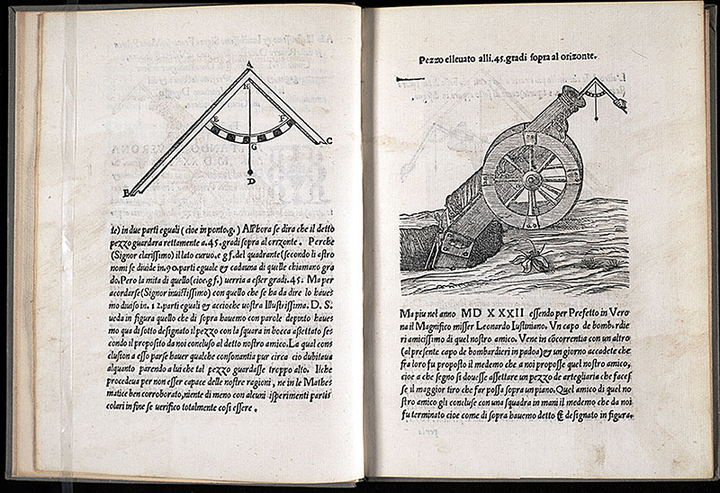 A
H
E
F
G
B
C
D
te) in due parti eguali (cioe in ponto.g.) Alhora se dira che il detto
pezzo guardara rettamente a.45. gradi sopra al orizonte. Perche
(Signor clarissimo) il lato curuo.e gf. del quadrante (secondo li astro
nomi se diuide in.90. parti eguale & cadauna di quelle chiamano gra
do. Pero la mita di quello (cioe.gf.) uerria a esser gradi.45. Ma per
acordarse (Signor inuittissimo) con quello che se ha da dire lo haue
mo diuiso in.12. parti eguali & accioche uostra Illustrissima. D. S.
ueda in figura quello che di sopra hauemo con parole depinto haue
mo qua di sotto designato il pezzo con la squara in bocca assettato se
condo il proposito da noi concluso al detto nostro amico. La qual con
clusion a esso parse hauer qualche consonantia pur circa cio dubitaua
alquanto parendo a lui che tal pezzo guardasse troppo alto. Ilche
procedeua per non esser capace delle nostre ragioni, ne in le Mathe
matice ben corroborato, niente di meno con alcuni isperimenti parti
colari in fine se uerifico totalmente cosi essere.
Pezzo elleuato alli.45.gradi sopra al orizonte.
Ma piu nel anno MD XXXII essendo per Prefetto in Vero
na il Magnifico misser Leonardo Iustiniano. Vn capo de bombardie
ri amicissimo di quel nostro amico. Vene in concorrentia con un altro
(al presente capo de bombardieri in padoa) & un giorno accadete che
fra loro fu proposito il medemo che a noi proposse quel nostro amico,
cioe a che segno si douesse assettare un pezzo de artegliaria che faces
se il maggior tiro che far possa sopra un piano. Quel amico di quel no
stro amico gli concluse con una squadra in mani il medemo che da noi
fu terminato cioe come di sopra hauemo detto & designato in figura.